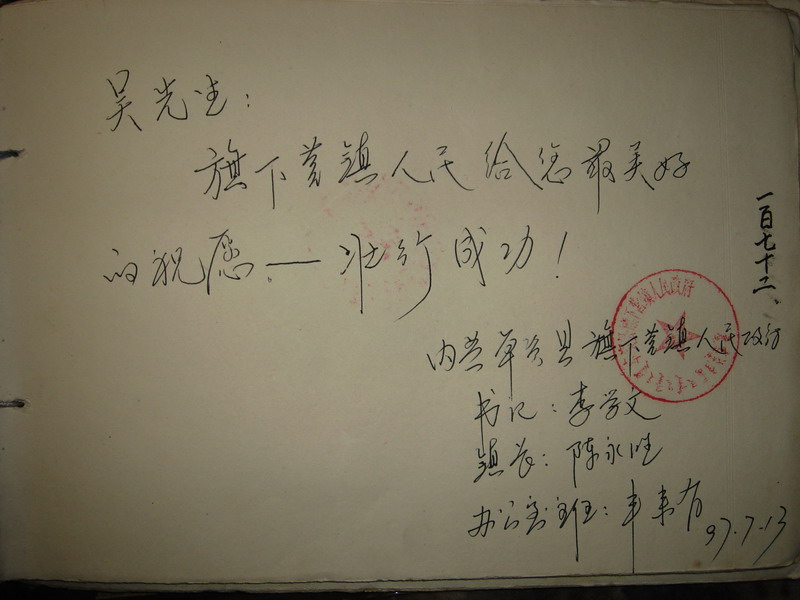 吴先生：
旗下营镇人民给您最美好
的祝愿——壮行成功！
内蒙卓资县旗下营镇人民政府
书记：李学文
镇长：陈永胜
办公室主任：
97.7.13
一百七十二